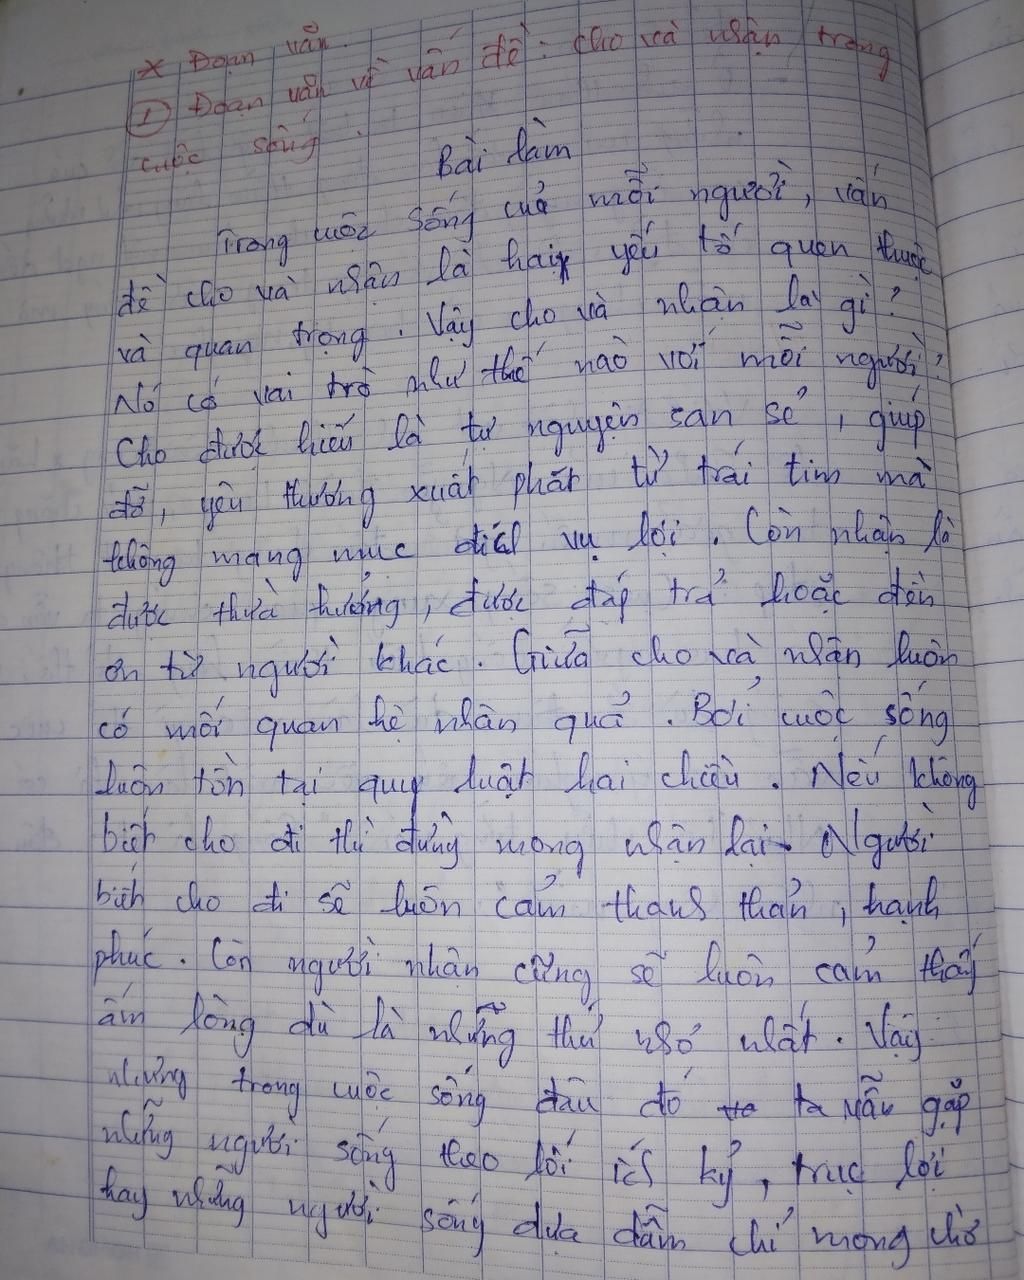 * Đoạn văn.
① Đoạn văn về vấn đề: cho và nhận trong
cuộc sống.
Bài làm
Trong cuộc sống của mỗi người, vấn
đề cho và nhận là hai yếu tố quen thuộc
và quan trọng. Vậy cho và nhận là gì?
Nó có vai trò như thế nào với mỗi người?
Cho được hiểu là tự nguyện san sẻ, giúp
đỡ, yêu thương xuất phát từ trái tim mà
không mang mục đích vụ lợi. Còn nhận là
được thừa hưởng, được đáp trả hoặc đền
ơn từ người khác. Giữa cho và nhận luôn
có mối quan hệ nhân quả. Bởi cuộc sống
luôn tồn tại quy luật hai chiều. Nếu không
biết cho đi thì đừng mong nhận lại. Người
biết cho đi sẽ luôn cảm thanh thản, hạnh
phúc. Còn người nhận cũng sẽ luôn cảm thấy
ấm lòng dù là những thứ nhỏ nhất. Vậy
nhưng trong cuộc sống đâu đó ta vẫn gặp
những người sống theo lối ích kỷ, trục lợi
hay những người sống dựa dẫm chỉ mong chờ